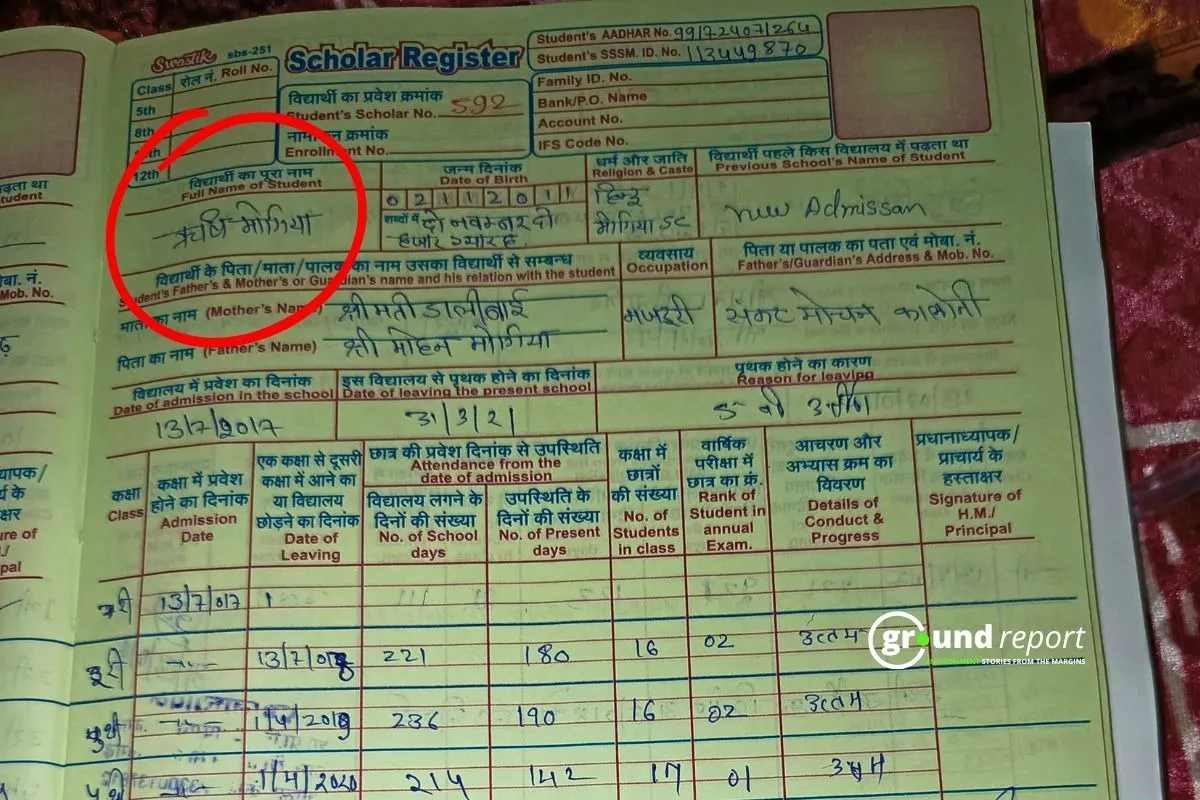 Swastik sbs-251
Scholar Register
Student's AADHAR No. 991724071264
Student's SSSM. ID. No. 113449870
Class रोल नं. Roll No.
5th
8th
12th
विद्यार्थी का प्रवेश क्रमांक
Student's Scholar No. 592
Enrollment No.
Family ID. No.
Bank/P.O. Name
Account No.
IFS Code No.
विद्यार्थी का पूरा नाम
Full Name of Student
ऋषि मोगिया
जन्म दिनांक
Date of Birth
0 2 1 1 2 0 1 1
शब्दों में दो नवम्बर दो
हजार ग्यारह
धर्म और जाति
Religion & Caste
हिन्दू
मोगिया SC
विद्यार्थी पहले किस विद्यालय में पढ़ता था
Previous School's Name of Student
New Admissan
विद्यार्थी के पिता/माता/पालक का नाम उसका विद्यार्थी से सम्बन्ध
Student's Father's & Mother's or Guardian's name and his relation with the student
माता का नाम (Mother's Name) श्रीमती डालीबाई
पिता का नाम (Father's Name) श्री मोहन मोगिया
व्यवसाय
Occupation
मजदूरी
पिता या पालक का पता एवं मोबा. नं.
Father's/Guardian's Address & Mob. No.
संकट मोचन कालोनी
विद्यालय में प्रवेश का दिनांक
Date of admission in the school
13/7/2017
इस विद्यालय से पृथक होने का दिनांक
Date of leaving the present school
31/3/21
पृथक होने का कारण
Reason for leaving
कक्षा
Class
कक्षा में प्रवेश
होने का दिनांक
Admission
Date
एक कक्षा से दूसरी
कक्षा में आने का
या विद्यालय
छोड़ने का दिनांक
Date of
Leaving
छात्र की प्रवेश दिनांक से उपस्थिति
Attendance from the
date of admission
विद्यालय लगने के
दिनों की संख्या
No. of School
days
उपस्थिति के
दिनों की संख्या
No. of Present
days
कक्षा में
छात्रों
की संख्या
No. of
Students
in class
वार्षिक
परीक्षा में
छात्र का क्रं.
Rank of
Student in
annual
Exam.
आचरण और
अभ्यास क्रम का
विवरण
Details of
Conduct &
Progress
प्रधानाध्यापक/
प्राचार्य के
हस्ताक्षर
Signature of
H.M./
Principal
13/7/017
13/7/018 221 180 16 02 उत्तम
1/4/2019 236 190 16 02 उत्तम
1/4/2020 214 142 17 01 उत्तम
ground report
STORIES FROM THE MARGINS
पढ़ता था
tudent
मोबा. नं.
Mob. No.
यापक/
र्य के
क्षर
ure of
pal